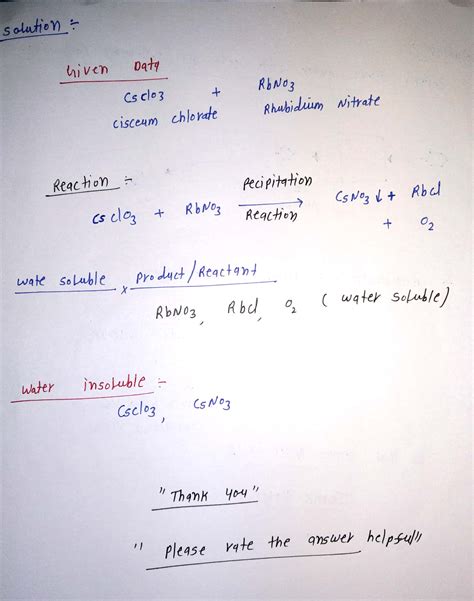 solution :-
Given Data
Csclo3 + RbNO3
cisceum chlorate Rhubidium Nitrate
Reaction :-
cs clo3 + RbNO3 Pecipitation Reaction → CsNO3 ↓ + Rbcl + O2
wate soluble x Product/Reactant
RbNO3, Rbcl, O2 ( water soluble)
water insoluble :-
Csclo3, CsNO3
"Thank you"
" please rate the answer helpful"